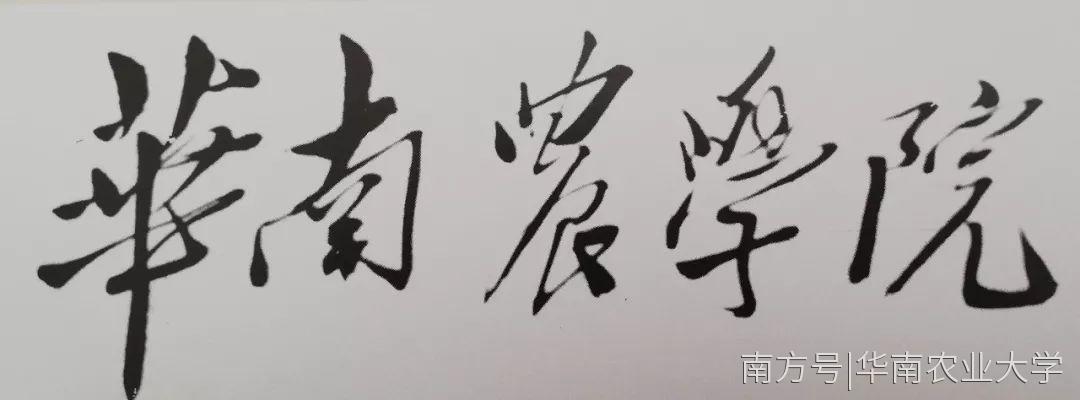 華南農學院
南方号|华南农业大学